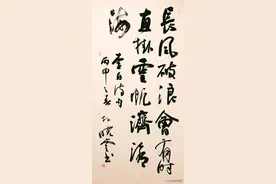 長風破浪會有時
直掛雲帆濟滄
海
李白詩句
丙申之春
曉雲書